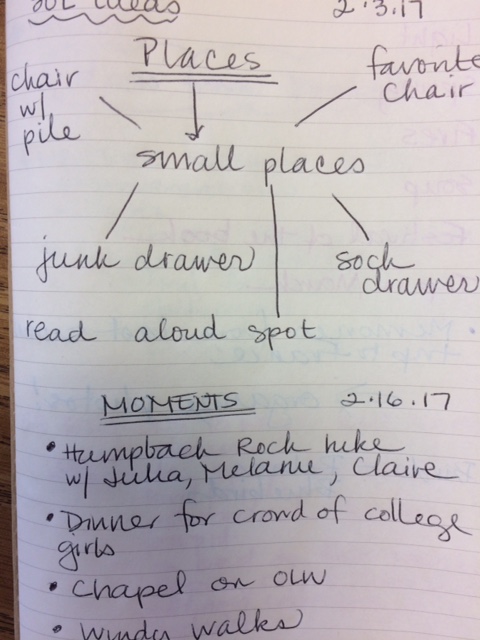 SOL ideas 2.3.17
Places
chair
w/
pile
favorite
chair
small places
junk drawer
sock
drawer
read aloud spot
MOMENTS 2.16.17
• Humpback Rock hike
w/ Julia, Melanie, Claire
• Dinner for crowd of college
girls
• Chapel on OLW
• Windy walks